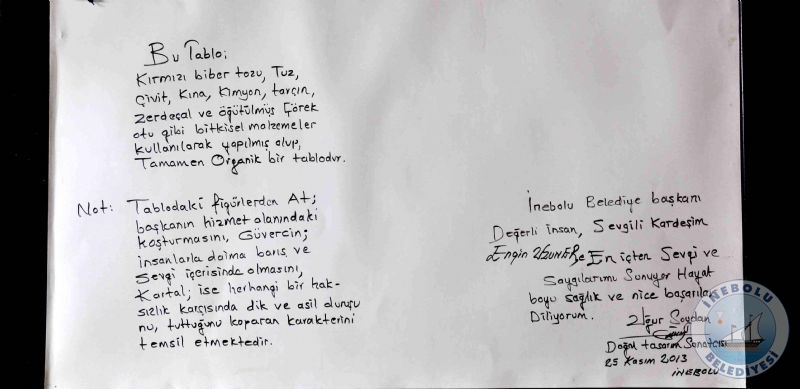 Bu Tablo;
Kırmızı biber tozu, Tuz,
Çivit, Kına, Kimyon, tarçın,
zerdeçal ve öğütülmüş Çörek
otu gibi bitkisel malzemeler
kullanılarak yapılmış olup,
Tamamen Organik bir tablodur.
Not: Tablodaki figürlerden At;
başkanın hizmet alanındaki
koşturmasını, Güvercin;
insanlarla daima barış ve
Sevgi içerisinde olmasını,
Kartal; ise herhangi bir hak-
sızlık karşısında dik ve asil duruşu
nu, tuttuğunu koparan karakterini
temsil etmektedir.
İnebolu Belediye başkanı
Değerli insan, Sevgili Kardeşim
Engin UZUNER'e En içten Sevgi ve
Saygılarımı Sunuyor Hayat
boyu sağlık ve nice başarılar
Diliyorum.
Uğur Soydan
Doğal tasarım Sanatçısı
25 Kasım 2013
İNEBOLU
İNEBOLU
BELEDİYESİ